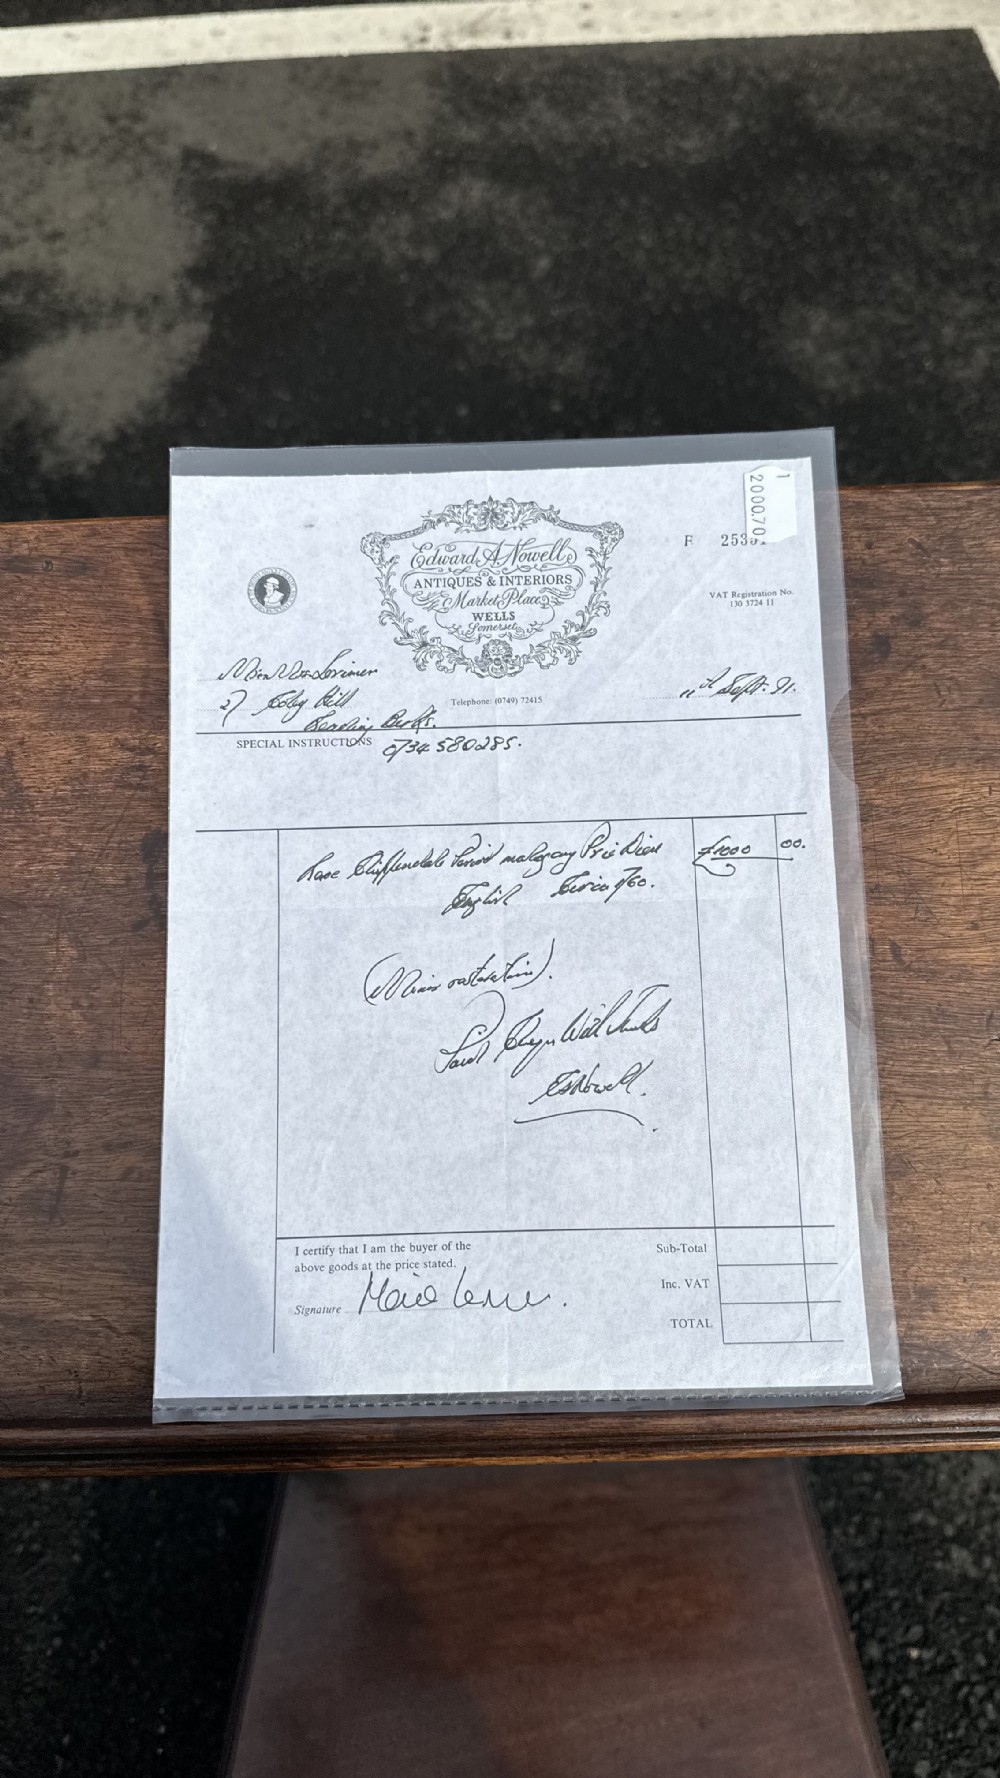 1
2000.70
F 2539
Edward A. Nowell
ANTIQUES & INTERIORS
Market Place
WELLS
Somerset
VAT Registration No.
130 3724 11
27 Coley Hill
Telephone: (0749) 72415
11th Sept. 91.
Reading Berks.
SPECIAL INSTRUCTIONS 0734 580285.
Rare Chippendale Period mahogany Prie Dieu £1000 00.
English Circa 1760.
(Minor restorations).
Paid Cheque With Thanks
EANowell.
I certify that I am the buyer of the
above goods at the price stated.
Signature
Sub-Total
Inc. VAT
TOTAL